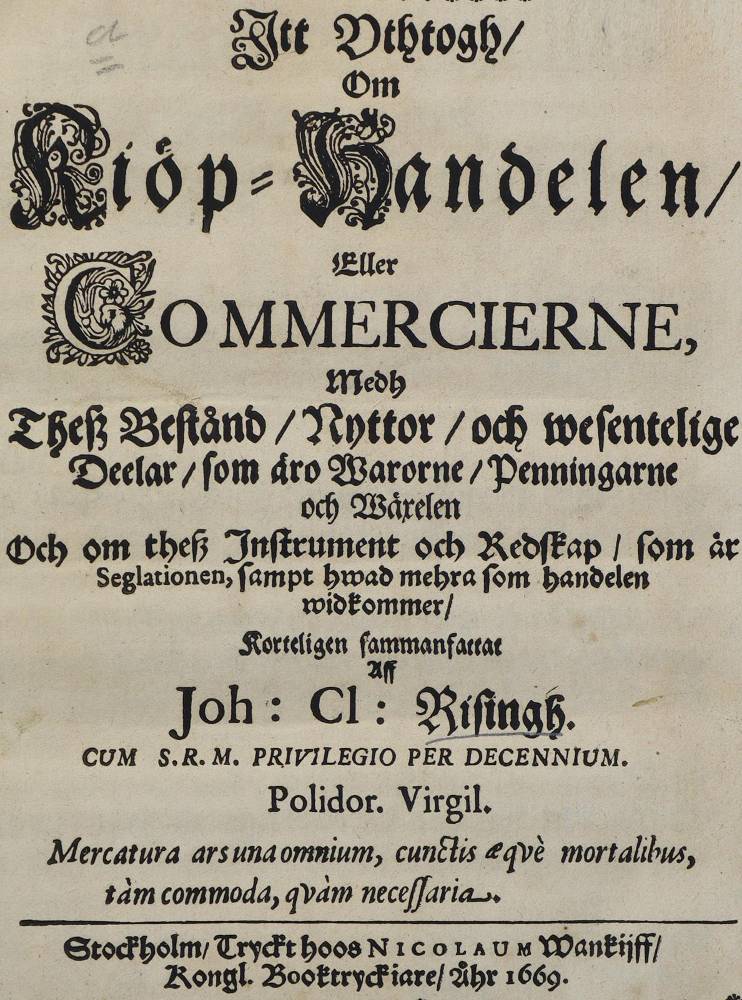 Itt Vthtogh/
Om
Kiöp-Handelen/
Eller
COMMERCIERNE,
Medh
Theß Bestånd / Nyttor / och wesentelige
Deelar / som äro Warorne / Penningarne
och Wäxelen
Och om theß Instrument och Redskap / som är
Seglationen, sampt hwad mehra som handelen
widkommer/
Korteligen sammanfattat
Aff
Joh: Cl: Risingh.
CUM S.R.M. PRIVILEGIO PER DECENNIUM.
Polidor. Virgil.
Mercatura ars una omnium, cunctis æqvè mortalibus,
tàm commoda, qvàm necessaria.
Stockholm/ Tryckt hoos NICOLAUM Wankijff/
Kongl. Booktryckiare/ Åhr 1669.